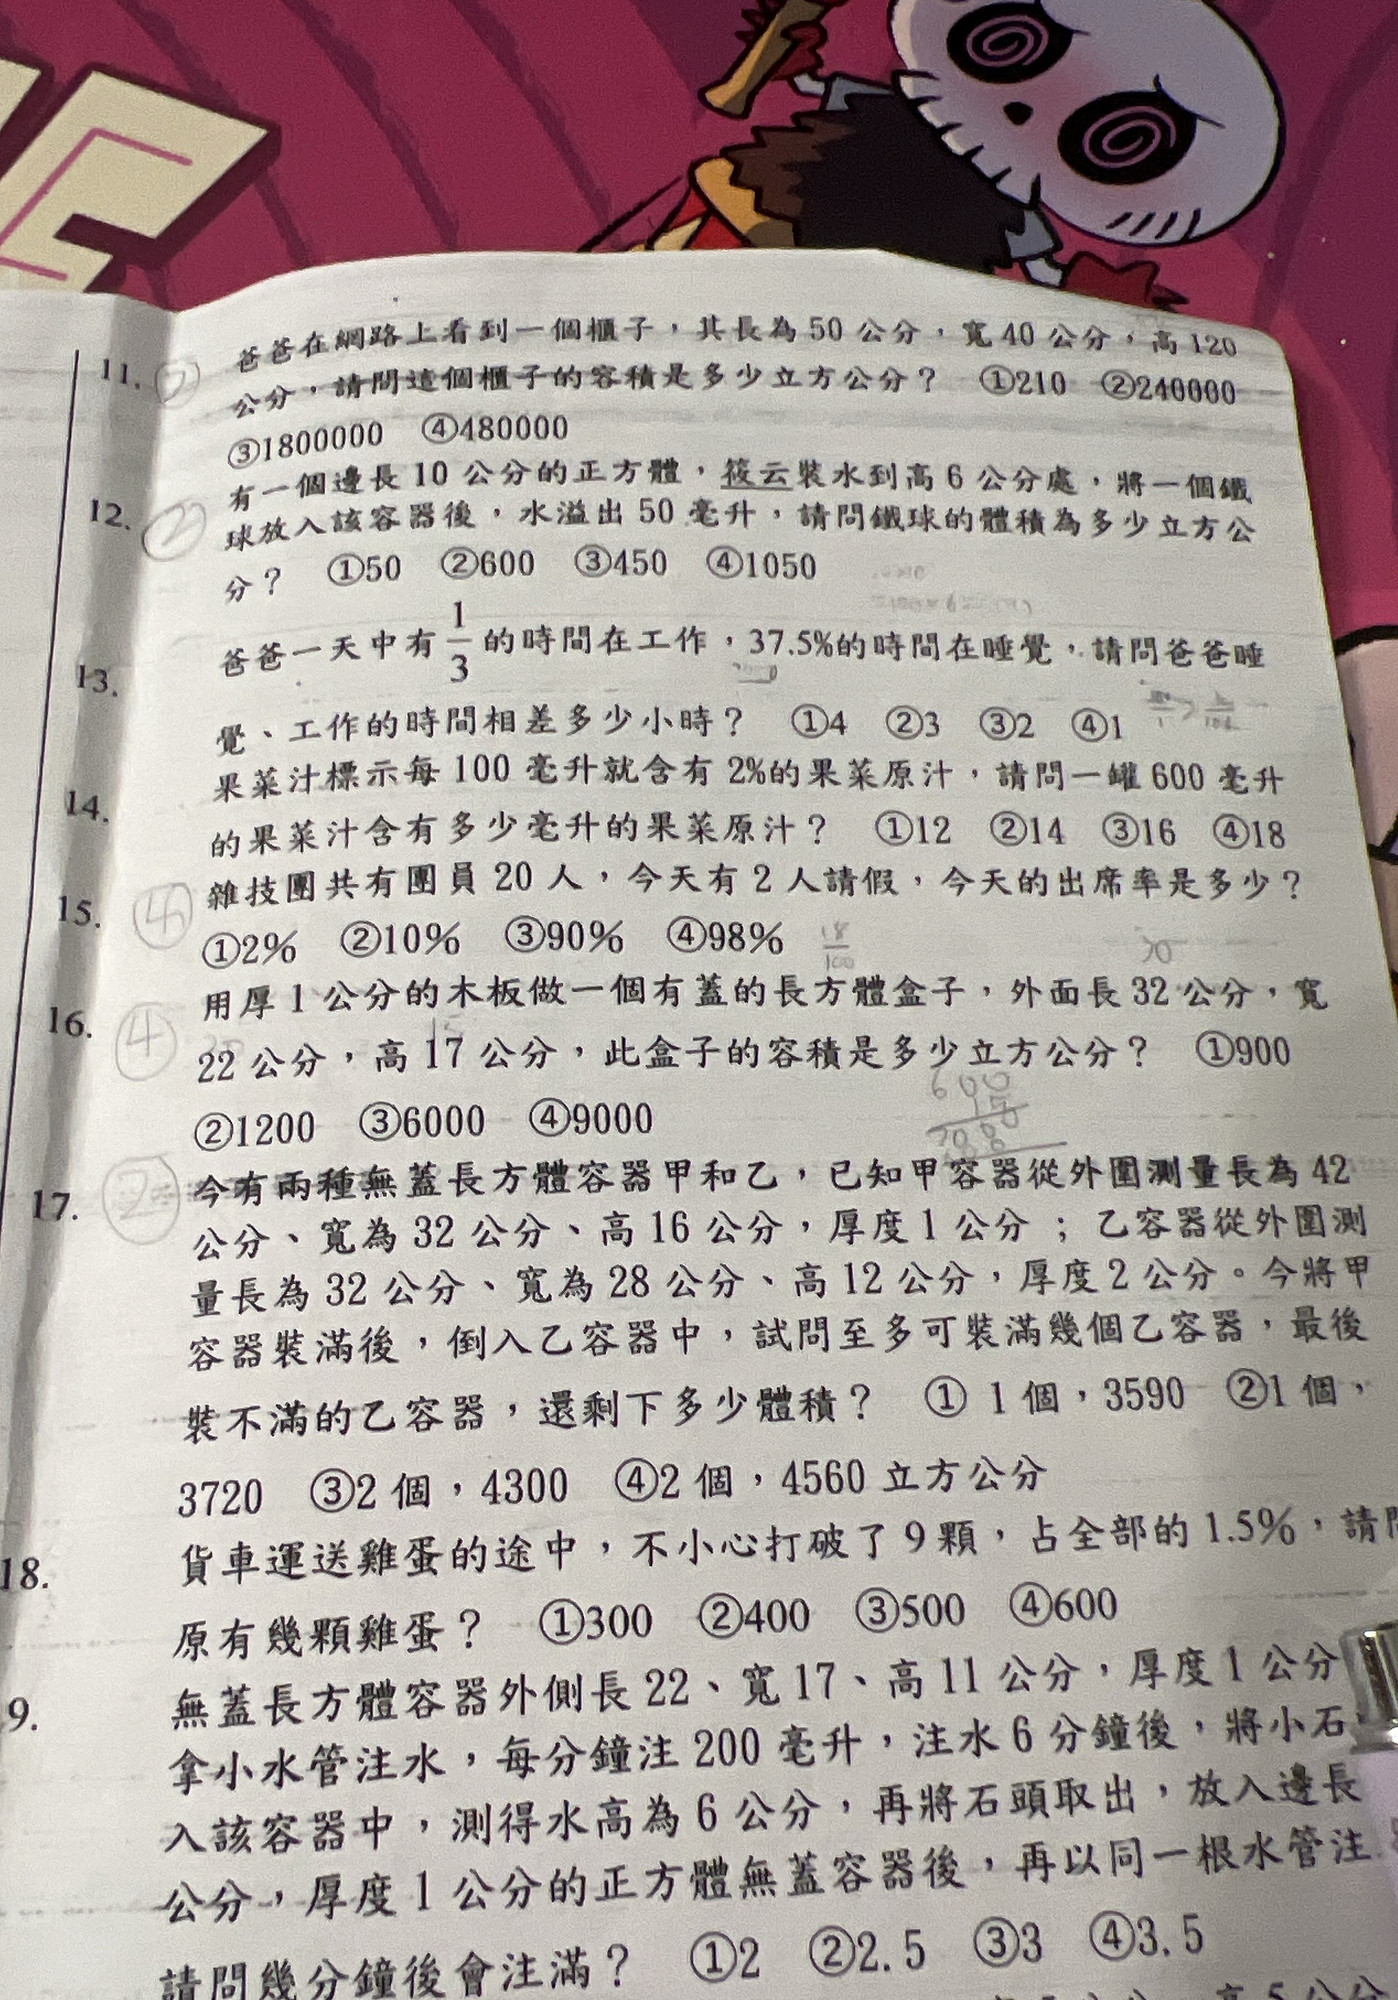 11. ② 爸爸在網路上看到一個櫃子，其長為50公分，寬40公分，高120
公分，請問這個櫃子的容積是多少立方公分？ ①210 ②240000
③1800000 ④480000
12. ② 有一個邊長10公分的正方體，筱云裝水到高6公分處，將一個鐵
球放入該容器後，水溢出50毫升，請問鐵球的體積為多少立方公
分？ ①50 ②600 ③450 ④1050
13. 爸爸一天中有1/3的時間在工作，37.5%的時間在睡覺，請問爸爸睡
覺、工作的時間相差多少小時？ ①4 ②3 ③2 ④1
14. 果菜汁標示每100毫升就含有2%的果菜原汁，請問一罐600毫升
的果菜汁含有多少毫升的果菜原汁？ ①12 ②14 ③16 ④18
15. ④ 雜技團共有團員20人，今天有2人請假，今天的出席率是多少？
①2% ②10% ③90% ④98% 18/100
30
16. ④ 用厚1公分的木板做一個有蓋的長方體盒子，外面長32公分，寬
15
22公分，高17公分，此盒子的容積是多少立方公分？ ①900
②1200 ③6000 ④9000
600
17. ② 今有兩種無蓋長方體容器甲和乙，已知甲容器從外圍測量長為42
公分、寬為32公分、高16公分，厚度1公分；乙容器從外圍測
量長為32公分、寬為28公分、高12公分，厚度2公分。今將甲
容器裝滿後，倒入乙容器中，試問至多可裝滿幾個乙容器，最後
裝不滿的乙容器，還剩下多少體積？ ① 1個，3590 ②1個，
3720 ③2個，4300 ④2個，4560立方公分
18. 貨車運送雞蛋的途中，不小心打破了9顆，占全部的1.5%，請問
原有幾顆雞蛋？ ①300 ②400 ③500 ④600
9. 無蓋長方體容器外側長22、寬17、高11公分，厚度1公分
拿小水管注水，每分鐘注200毫升，注水6分鐘後，將小石
入該容器中，測得水高為6公分，再將石頭取出，放入邊長
公分，厚度1公分的正方體無蓋容器後，再以同一根水管注
請問幾分鐘後會注滿？ ①2 ②2.5 ③3 ④3.5
高5公分